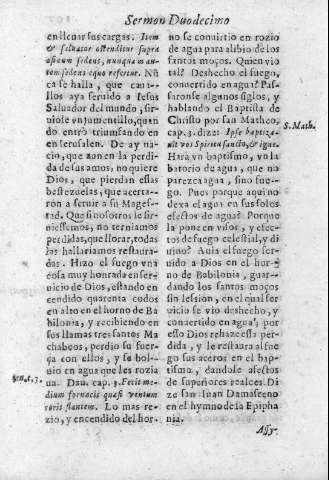 Sermon Duodecimo
en lleuar sus cargas. Item
& saluator ostenditur supra
asinum sedens, nunquam au-
tem sedens equo refertur. Nũ
ca se halla, que caua-
llos aya seruido a Iesus
Saluador del mundo, sir-
uiole vn jumentillo, quan
do entrò triumfando en
en Ierusalen. De ay na-
cio, que aun en la perdi-
da de sus amos, no quiere
Dios, que pierdan essas
bestezuelas, que acerta-
ron a seruir a su Mages-
tad. Que si nosotros le sir-
uiessemos, no terniamos
perdidas, que llorar, todas
las hallariamos restaura-
das. Hizo el fuego vna
cosa muy honrada en ser-
uicio de Dios, estando en
cendido quarenta codos
en alto en el horno de Ba
bilonia, y recibiendo en
sus llamas tres santos Ma
chabeos, perdio su fuer-
ça con ellos, y se bol-
uio en agua que les rozia
ua. Dan. cap. 3. Fecit medi
dium fornacis quasi ventum
roris flantem. Lo mas re-
zio, y encendido del hor-
no se conuirtio en rozio
de agua para alibio de los
santos moços. Quien vio
tal? Deshecho el fuego,
conuertido en agua? Pas-
saronse algunos siglos, y
hablando el Baptista de
Christo por san Matheo,
cap. 3. dize: Ipse baptiza-
uit vos Spiritu sancto, & igne.
S. Math.
Hara vn baptismo, vn la
batorio de agua, que no
parezca agua, sino fue-
go. Pues porque aqui no
dexa el agua en sus solos
efectos de agua? Porque
la pone en visos, y efec-
tos de fuego celestial, y di
uino? Auia el fuego serui-
do a Dios en el hor-
no de Babilonia, guar-
dando los santos moços
sin lession, en el qual ser
uicio se vio deshecho, y
conuertido en agua; por
esto Dios rehaze essa per-
dida, y le restaura al fue
go sus aceros en el bap-
tismo, dandole afectos
de superiores realces. Di
ze san Iuan Damasceno
en el hymno de la Epipha
nia.
Assy-